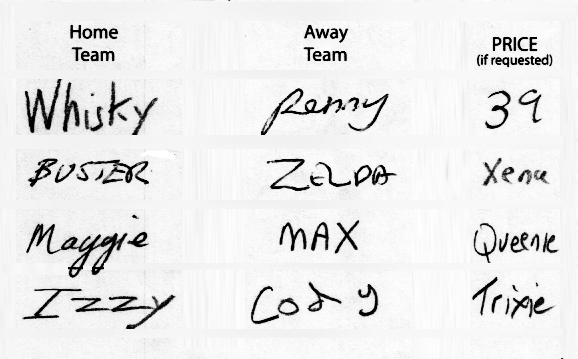 Home Team Away Team PRICE (if requested)
Whisky Penny 39
BUSTER ZELDA Xena
Maggie MAX Queenie
Izzy Cody Trixie